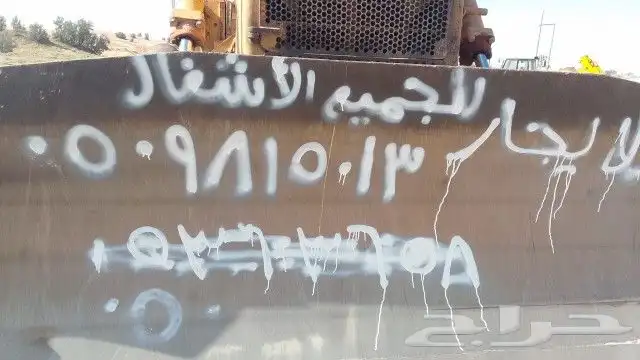 لايجار للجميع الأشغال
٠٥٠٩٨١٥٠١٣
٠٥٠
حراج